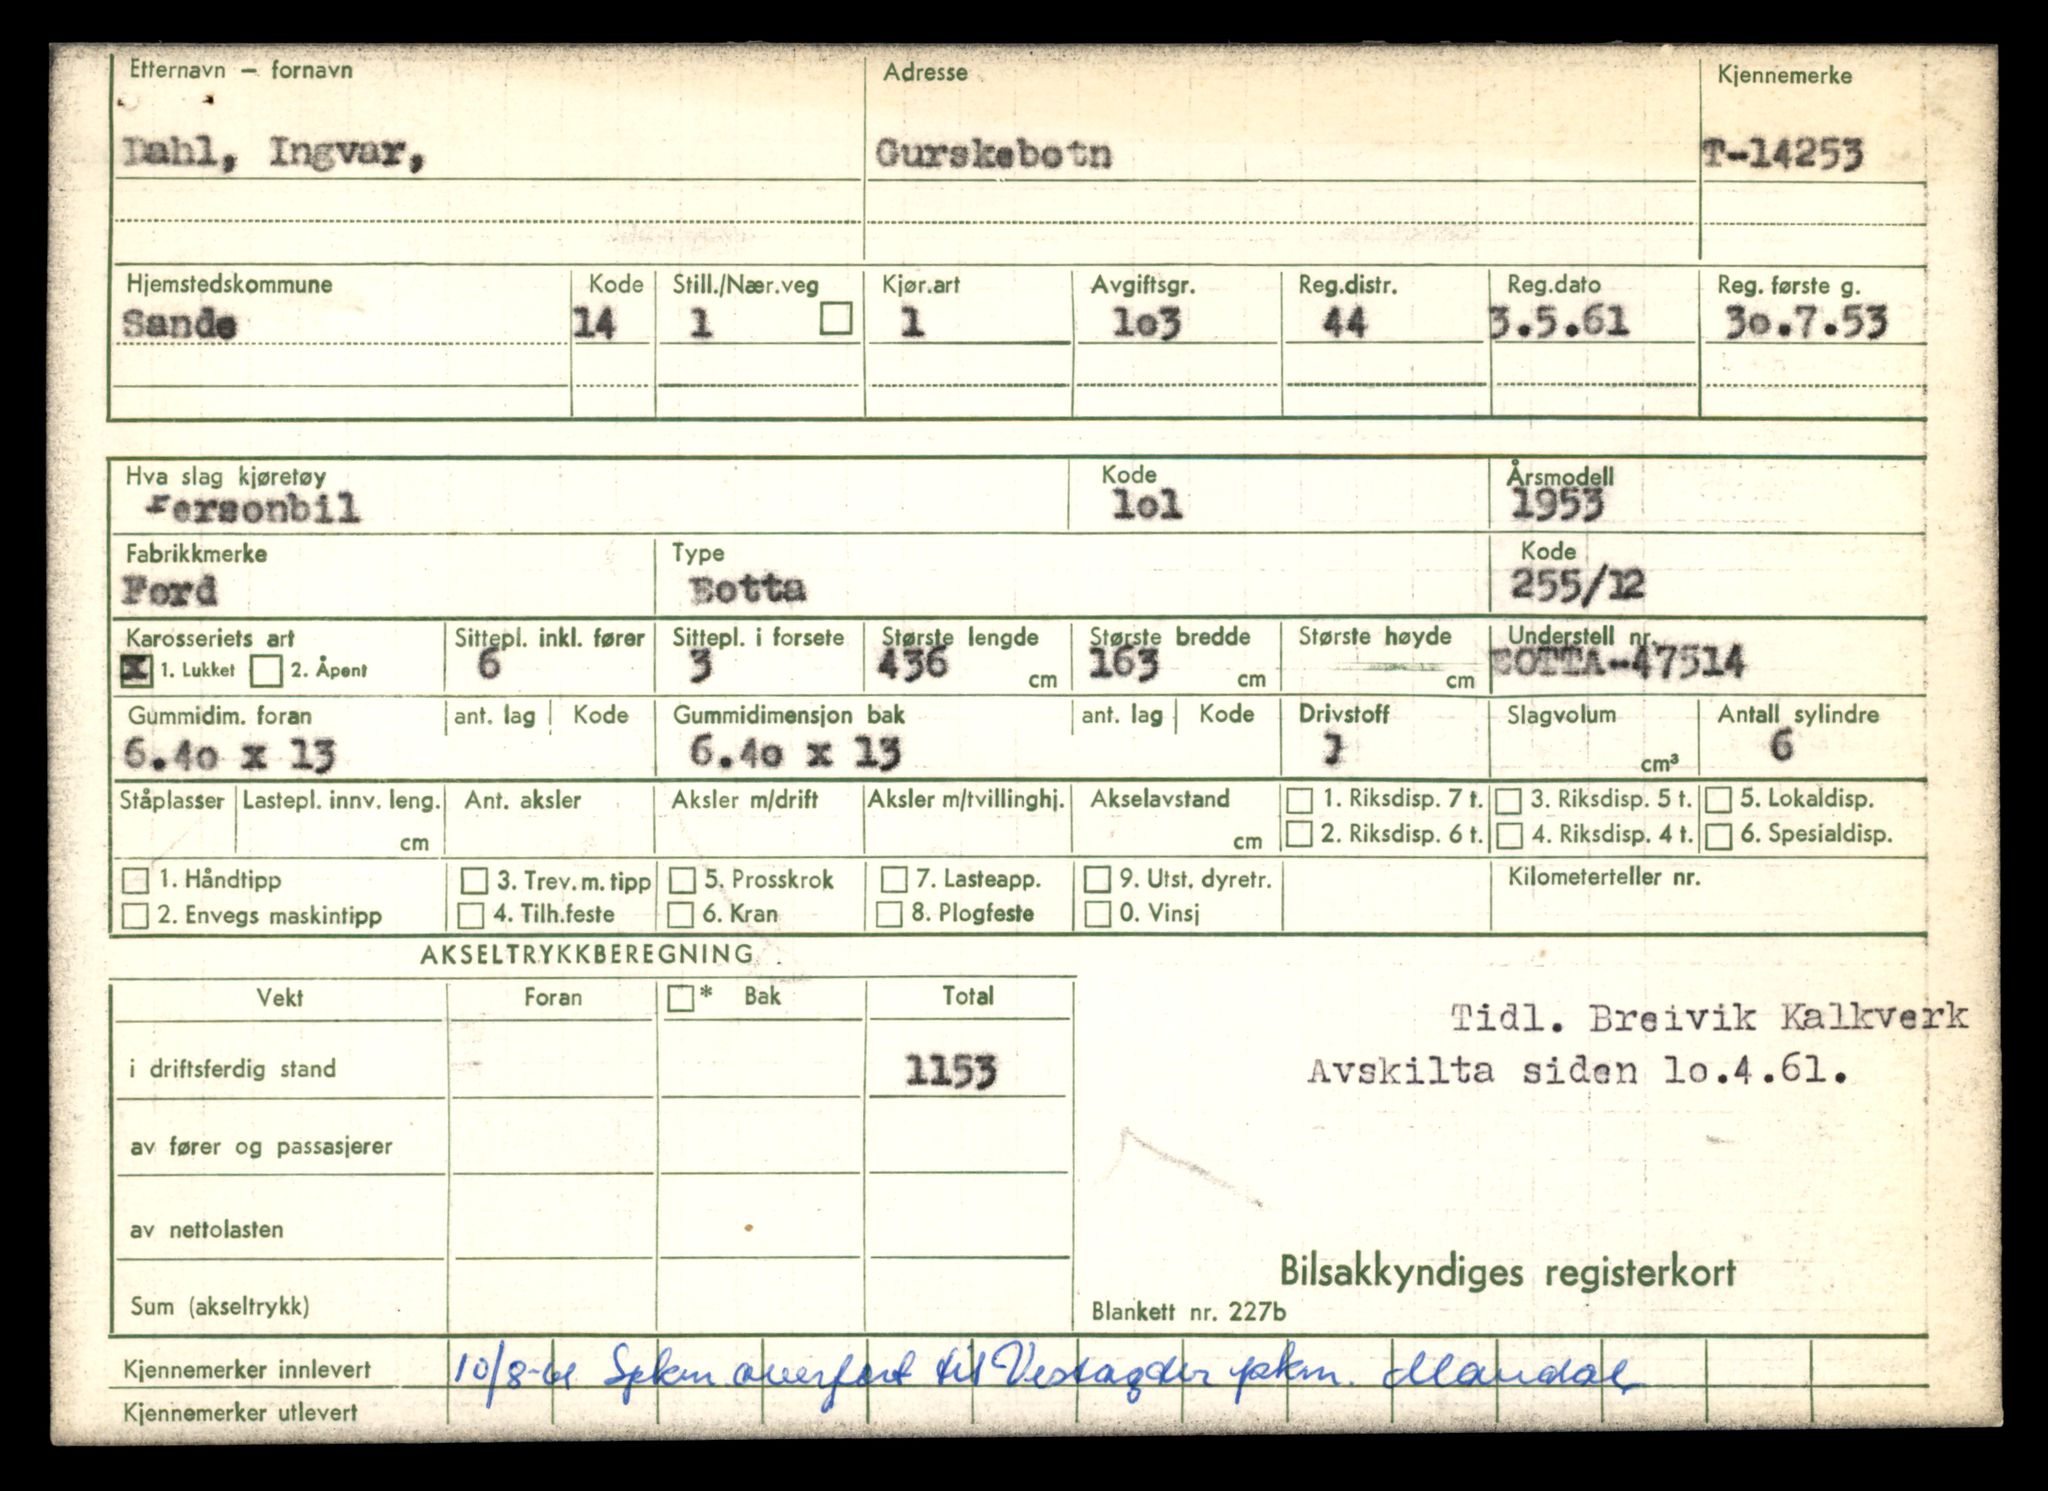 Etternavn – fornavn Adresse Kjennemerke
Dahl, Ingvar, Gurskebotn T-14253
Hjemstedskommune Kode Still./Nær.veg Kjør.art Avgiftsgr. Reg.distr. Reg.dato Reg. første g.
Sande 14 1 1 1o3 44 3.5.61 3o.7.53
Hva slag kjøretøy Kode Årsmodell
Personbil 1o1 1953
Fabrikkmerke Type Kode
Ford Eotta 255/12
Karosseriets art Sittepl. inkl. fører Sittepl. i forsete Største lengde Største bredde Største høyde Understell nr.
x 1. Lukket 2. Åpent 6 3 436 cm 163 cm cm EOTTA-47514
Gummidim. foran ant. lag Kode Gummidimensjon bak ant. lag Kode Drivstoff Slagvolum Antall sylindre
6.4o x 13 6.4o x 13 1 cm³ 6
Ståplasser Lastepl. innv. leng. Ant. aksler Aksler m/drift Aksler m/tvillinghj. Akselavstand 1. Riksdisp. 7 t. 3. Riksdisp. 5 t. 5. Lokaldisp.
cm cm 2. Riksdisp. 6 t. 4. Riksdisp. 4 t. 6. Spesialdisp.
1. Håndtipp 3. Trev. m. tipp 5. Prosskrok 7. Lasteapp. 9. Utst. dyretr. Kilometerteller nr.
2. Envegs maskintipp 4. Tilh.feste 6. Kran 8. Plogfeste 0. Vinsj
AKSELTRYKKBEREGNING
Vekt Foran * Bak Total
Tidl. Breivik Kalkverk
i driftsferdig stand 1153 Avskilta siden 1o.4.61.
av fører og passasjerer
av nettolasten
Bilsakkyndiges registerkort
Sum (akseltrykk) Blankett nr. 227b
Kjennemerker innlevert 10/8-61 Spkm. overført til Vestagder pkm. Mandal
Kjennemerker utlevert